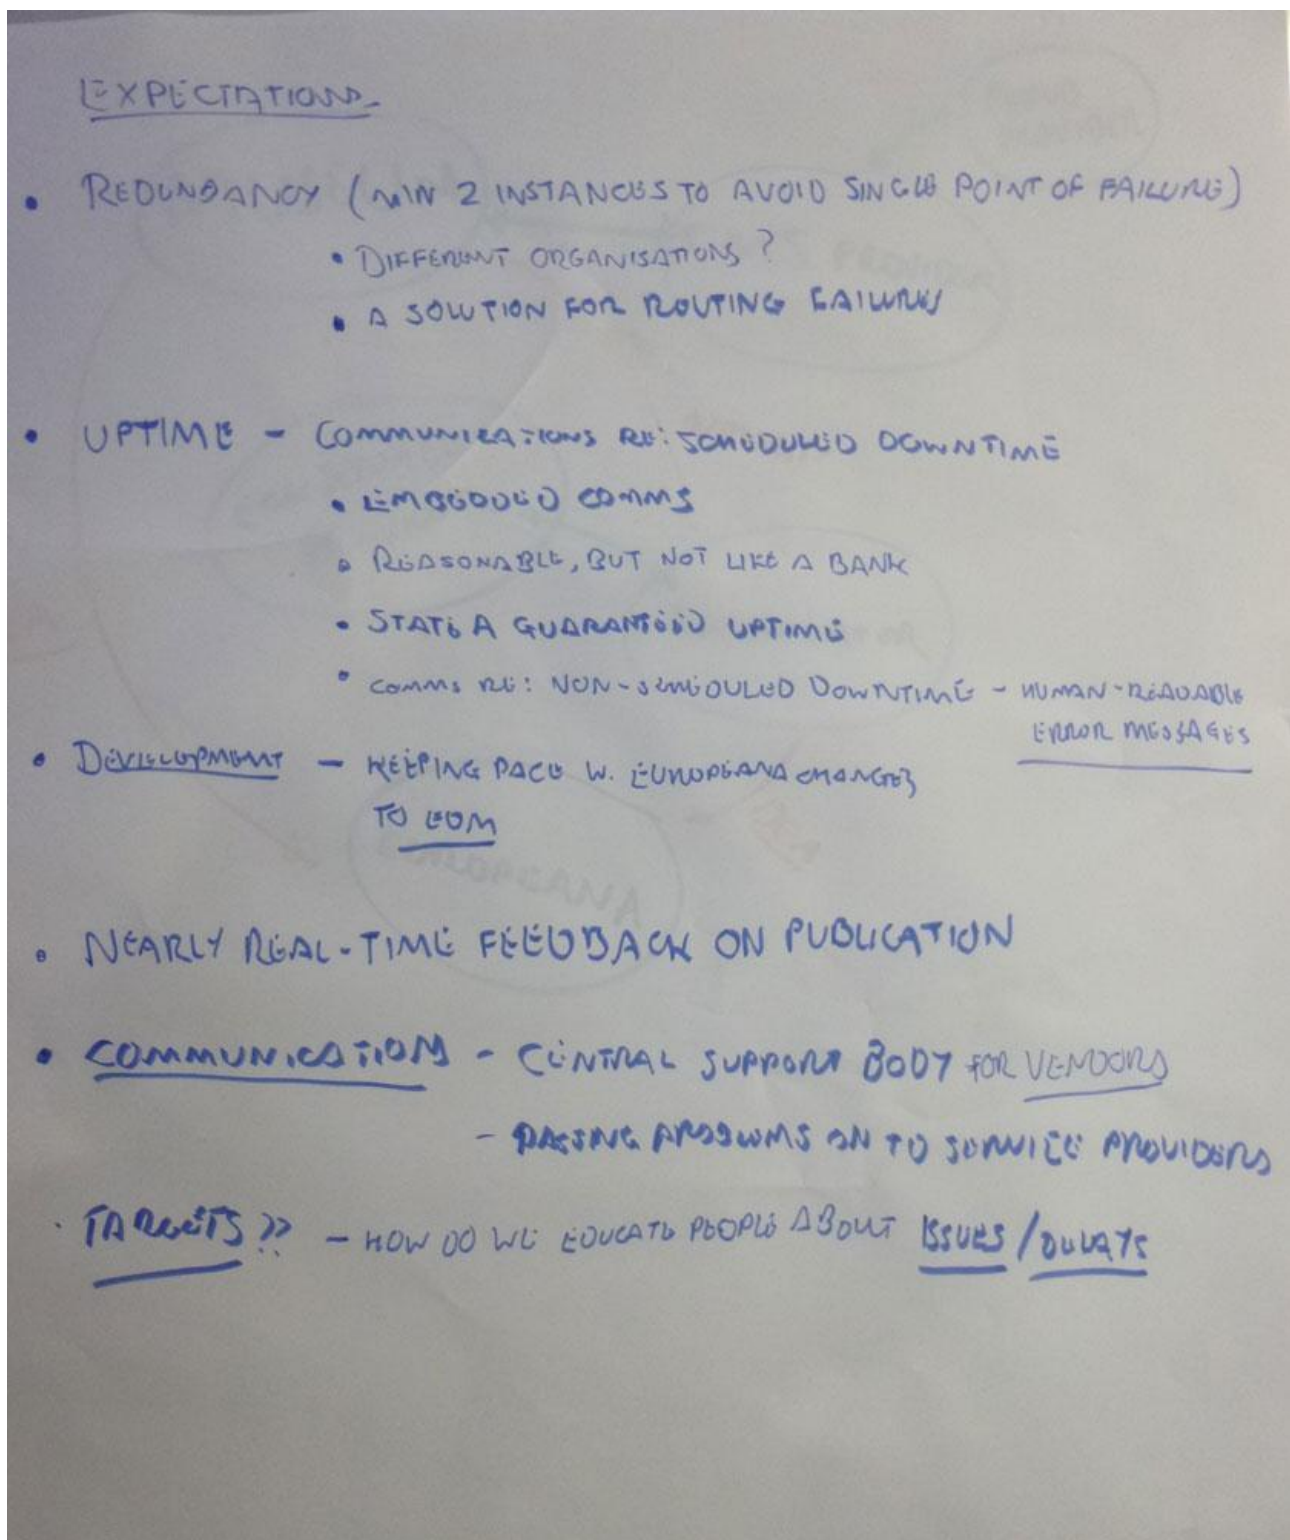 EXPECTATIONS
• REDUNDANCY (MIN 2 INSTANCES TO AVOID SINGLE POINT OF FAILURE)
• DIFFERENT ORGANISATIONS?
• A SOLUTION FOR ROUTING FAILURES
• UPTIME - COMMUNICATIONS RE: SCHEDULED DOWNTIME
• EMBEDDED COMMS
• REASONABLE, BUT NOT LIKE A BANK
• STATE A GUARANTEED UPTIME
• COMMS RE: NON-SCHEDULED DOWNTIME - HUMAN-READABLE
ERROR MESSAGES
• DEVELOPMENT - KEEPING PACE W. EUROPEANA CHANGES
TO EDM
• NEARLY REAL-TIME FEEDBACK ON PUBLICATION
• COMMUNICATIONS - CENTRAL SUPPORT BODY FOR VENDORS
- PASSING PROBLEMS ON TO SERVICE PROVIDERS
• TARGETS?? - HOW DO WE EDUCATE PEOPLE ABOUT ISSUES/DELAYS
EUROPEANA